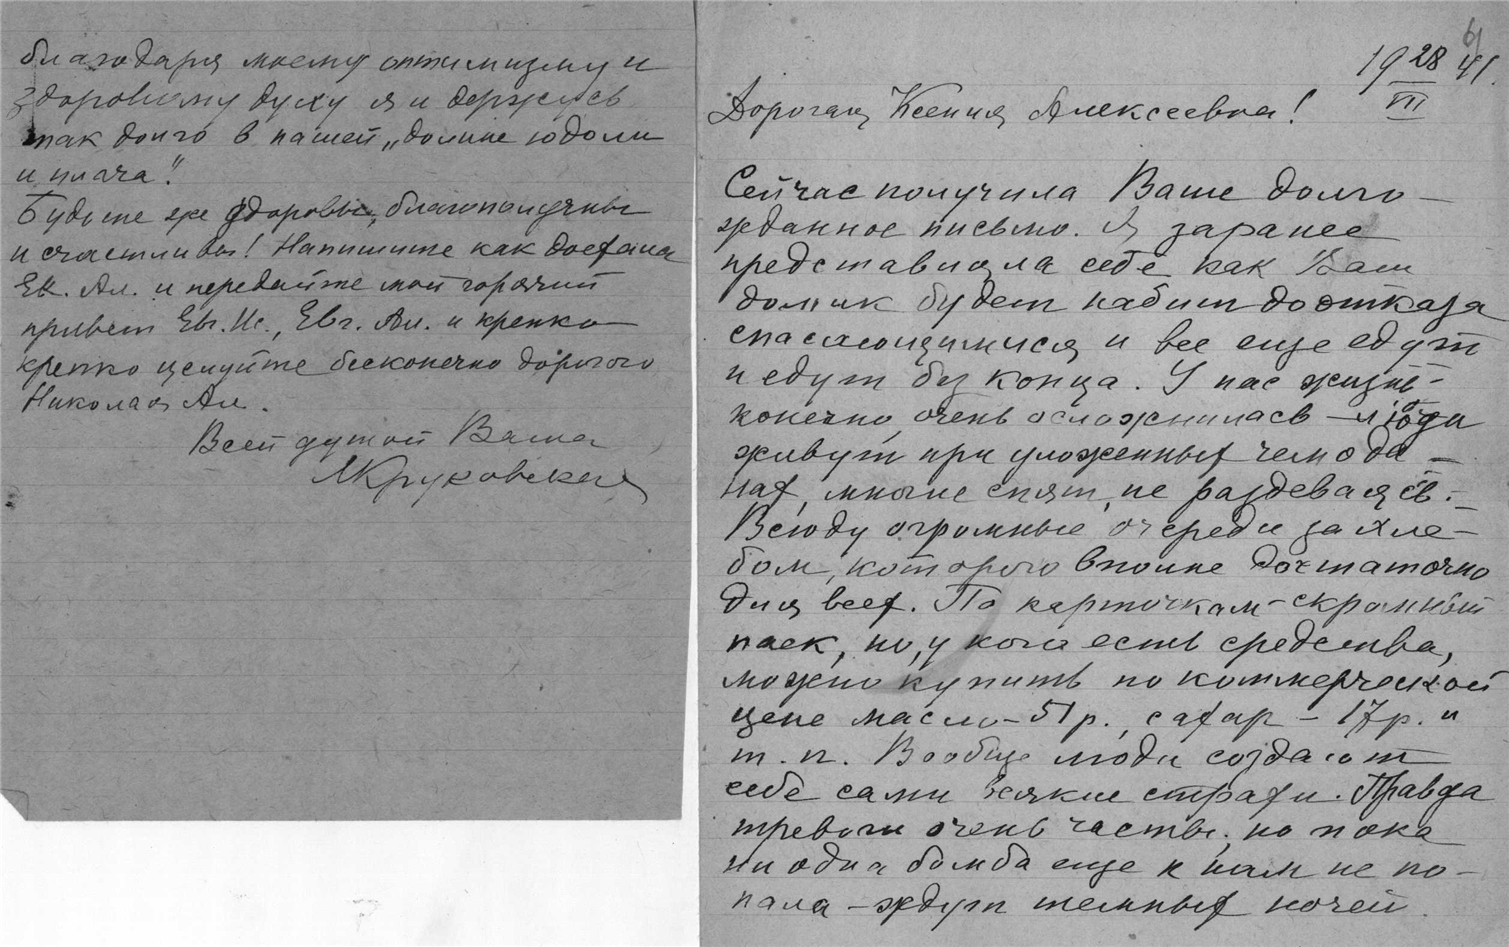 благодаря моему оптимизму и
здоровому духу я и держусь
так долго в нашей „долине юдоли
и плача“.
Будьте же здоровы, благополучны
и счастливы! Напишите как доехала
Ек. Ал. и передайте мой горячий
привет Евг. Ис., Евг. Ал. и крепко
крепко целуйте бесконечно дорогого
Николая Ал.
Всей душой Ваша
МКруковская
61
19 28/VII 41.
Дорогая Ксения Алексеевна!
Сейчас получила Ваше долго-
жданное письмо. Я заранее
представляла себе как Ваш
домик будет набит до отказа
спасающимися и все еще едут
и едут без конца. У нас жизнь
конечно очень осложнилась – люди
живут при уложенных чемода-
нах, многие спят, не раздеваясь.
Всюду огромные очереди за хле-
бом, которого вполне достаточно
для всех. По карточкам – скромный
паек, но, у кого есть средства,
можно купить по коммерческой
цене масло – 51 р., сахар – 17 р. и
т. п. Вообще люди создают
себе сами всякие страхи. Правда
тревоги очень часты, но пока
ни одна бомба еще к нам не по-
пала – ждут темных ночей.